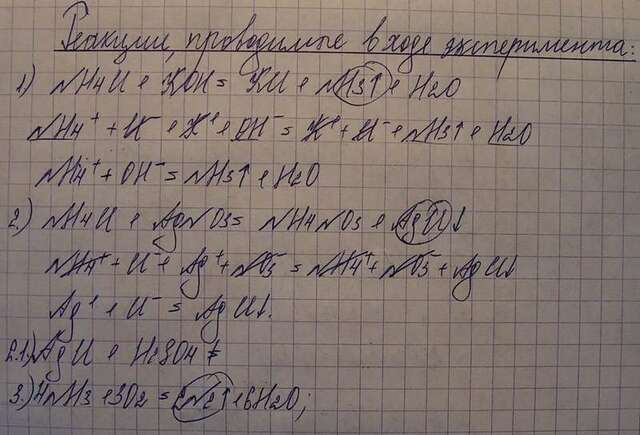 Реакции, проводимые в ходе эксперимента:
1) NH4Cl + KOH = KCl + NH3↑ + H2O
NH4⁺ + Cl⁻ + K⁺ + OH⁻ = K⁺ + Cl⁻ + NH3↑ + H2O
NH4⁺ + OH⁻ = NH3↑ + H2O
2.) NH4Cl + AgNO3 = NH4NO3 + AgCl↓
NH4⁺ + Cl⁻ + Ag⁺ + NO3⁻ = NH4⁺ + NO3⁻ + AgCl↓
Ag⁺ + Cl⁻ = AgCl↓.
2.1.) AgCl + H2SO4 ≠
3.) 4NH3 + 3O2 = 2N2↑ + 6H2O;